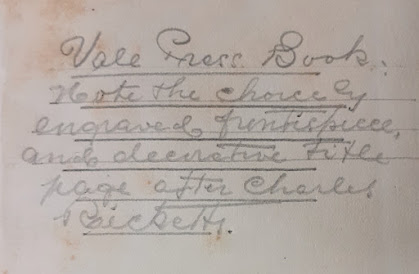 Vale Press Book.
Note the choicely
engraved frontispiece,
and decorative title
page after Charles
Ricketts.